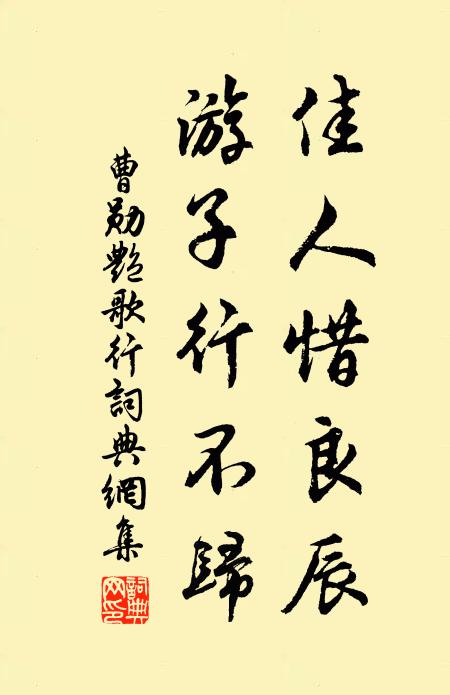 佳人惜良辰
游子行不歸
曹勛艷歌行詞典網集
詞典網印